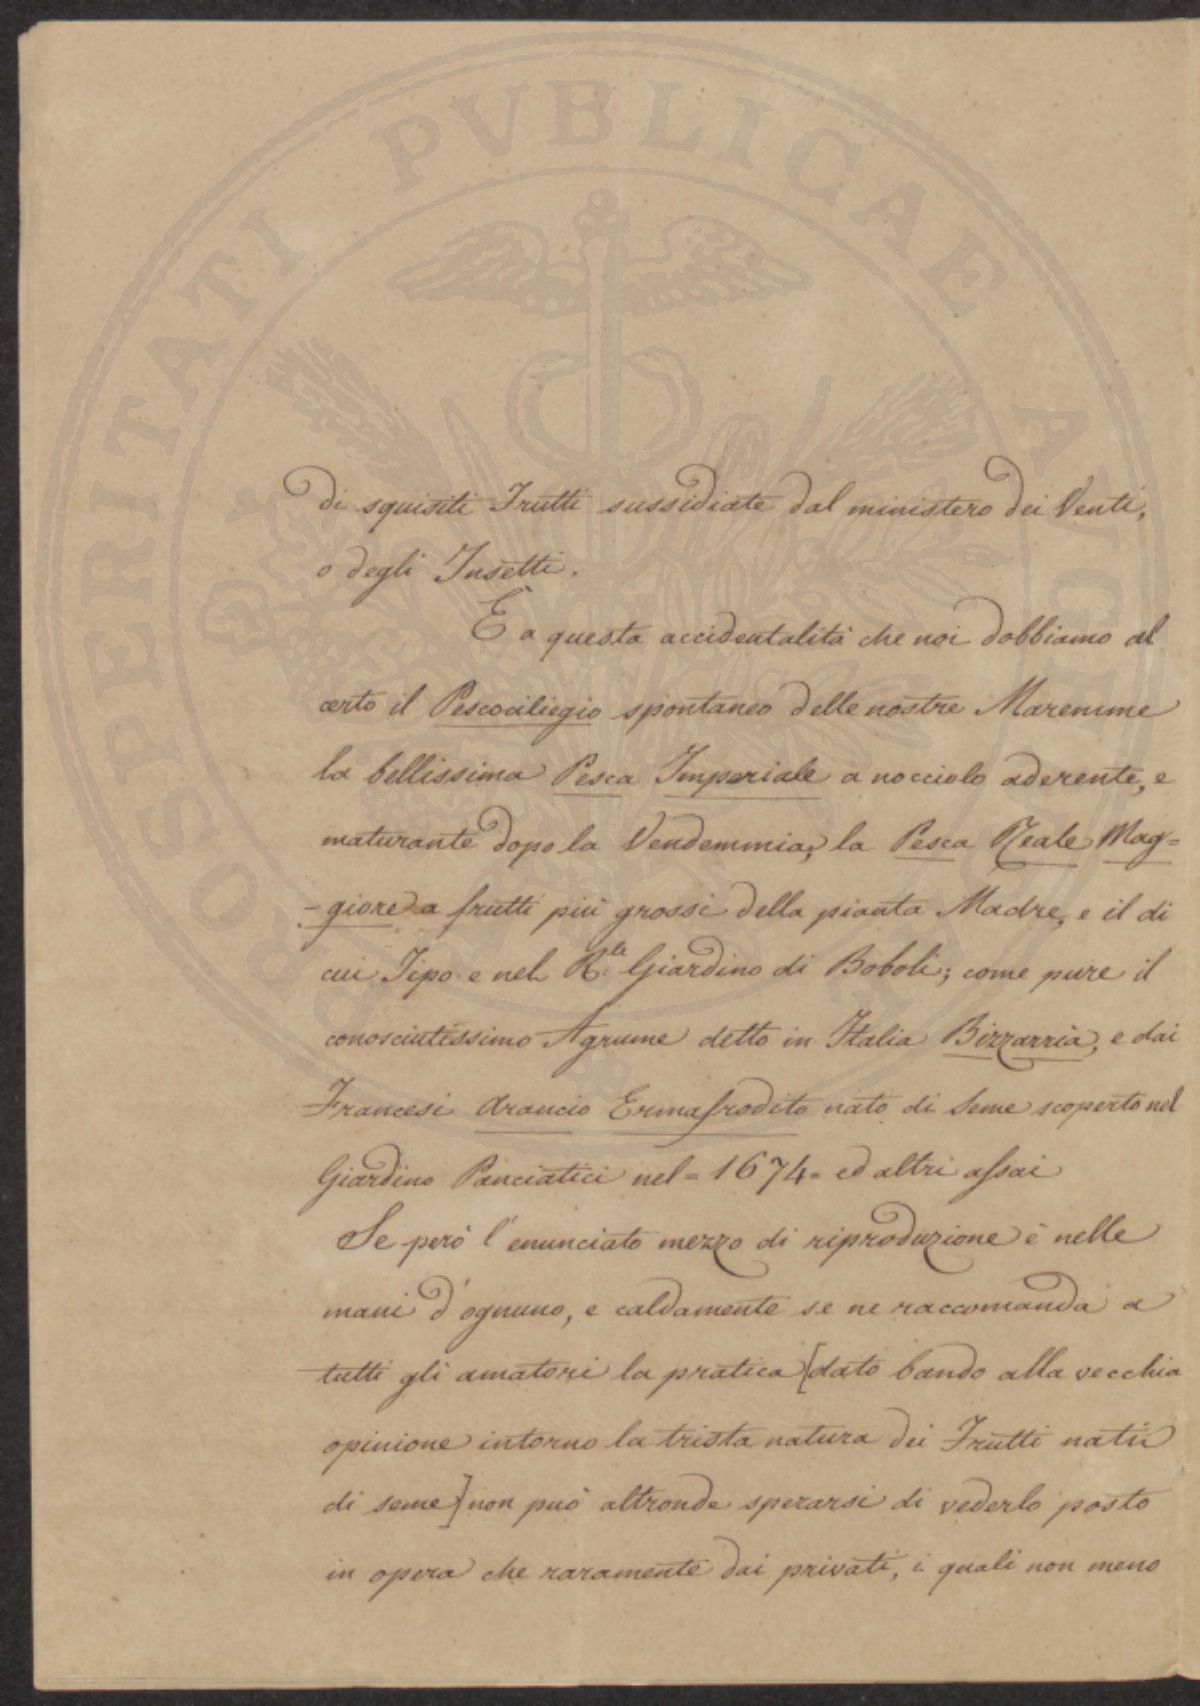 PROSPERITATI PVBLICAE AVGENDAE
di squisiti Frutti sussidiate dal ministero dei Venti,
o degli Insetti.
È a questa accidentalità che noi dobbiamo al
certo il Pescociliegio spontaneo delle nostre Maremme
la bellissima Pesca Imperiale a nocciolo aderente, e
maturante dopo la Vendemmia, la Pesca Reale Mag=
-giore a frutti più grossi della pianta Madre, e il di
cui Tipo e nel R.le Giardino di Boboli; come pure il
conosciutissimo Agrume detto in Italia Bizzarria, e dai
Francesi Arancio Ermafrodito nato di Seme scoperto nel
Giardino Panciatici nel = 1674 = ed altri assai
Se però l'enunciato mezzo di riproduzione è nelle
mani d'ognuno, e caldamente se ne raccomanda a
tutti gli amatori la pratica [dato bando alla vecchia
opinione intorno la trista natura dei Frutti natii
di seme] non può altronde sperarsi di vederlo posto
in opera che raramente dai privati, i quali non meno